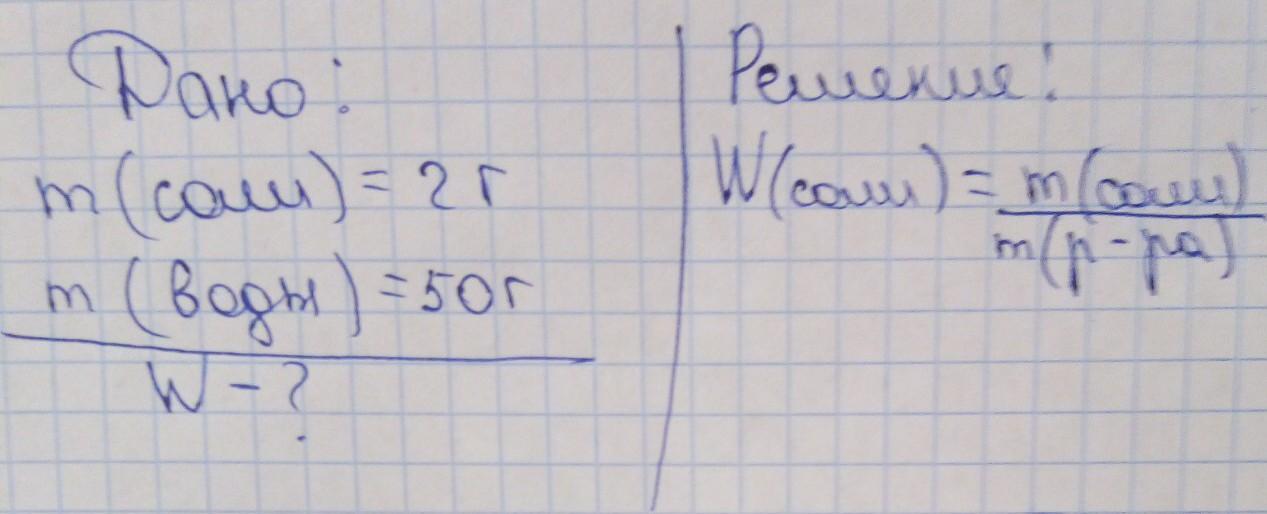 Дано:
m (соли) = 2 г
m (воды) = 50 г
W - ?
Решение:
W (соли) = m (соли)
m (р-ра)